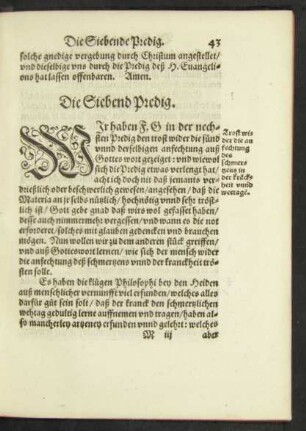 Die Siebende Predig. 43
solche gnedige vergebung durch Christum angestellet/
vnd dieselbige vns durch die Predig deß H. Euangeli-
ons hat lassen offenbaren. Amen.
Die Siebend Predig.
WJr haben F. G in der nech-
sten Predig den trost wider die sünd
vnnd derselbigen anfechtung auß
Gottes wort gezeiget: vnd wiewol
sich die Predig etwas verlenget hat/
acht ich doch nit daß jemants ver-
drießlich oder beschwerlich gewesen/ angesehen/ daß die
Materia an jr selbs nützlich/ hochnötig vnnd sehr tröst-
lich ist/ Gott gebe gnad daß wirs wol gefasset haben/
diese auch nimmermehr vergessen/ vnd wann es die not
erforderet/ solches mit glauben gedencken vnd brauchen
mögen. Nun wollen wir zu dem anderen stück greiffen/
vnd auß Gottes wort lernen/ wie sich der mensch wider
die anfechtung deß schmertzens vnnd der kranckheit trö-
sten solle.
Es haben die klůgen Philosophi bey den Heiden
auß menschlicher vernunfft viel erfunden/ welches alles
darfür gůt sein solt/ daß der kranck den schmertzlichen
wehtag gedultig lerne auffnemen vnd tragen/ haben al-
so mancherley artzeney erfunden vnnd gelehrt: welches
M iij aber
Trost wi-
der die an
fechtung
des
schmer-
tzens in
der kräck-
heit vnnd
wettagẽ.